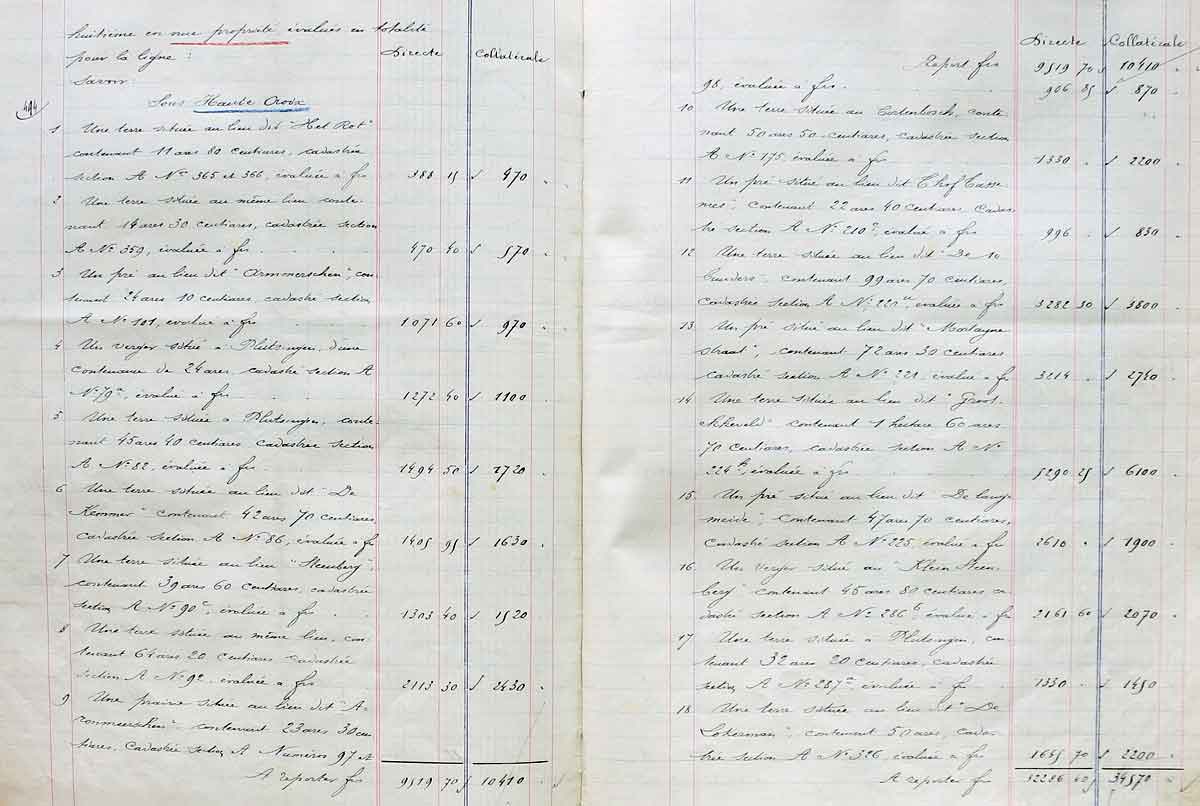 huitième en nue propriété évalués en totalité
pour la ligne : Directe Collatérale
Savoir
494
Sous Haute Croix
1 Une terre située au lieu dit "Het Rot"
contenant 11 ares 80 centiares, cadastrée
section A Nos 365 et 366, évaluée à frs 388 15 470
2 Une terre située au même lieu conte-
nant 14 ares 30 centiares, cadastrée section
A No 359, évaluée à frs 470 40 570
3 Un pré au lieu dit con-
tenant 24 ares 10 centiares, cadastré section
A No 101, évalué à frs 1071 60 970
4 Un verger situé à d'une
contenance de 24 ares, cadastré section A
No 79a, évalué à frs 1272 40 1100
5 Une terre située à conte-
nant 45 ares 40 centiares cadastrée section
A No 82, évaluée à frs 1494 50 1720
6 Une terre située au lieu dit "De
contenant 42 ares 70 centiares,
cadastrée section A No 86, évaluée à frs 1405 95 1630
7 Une terre située au lieu "Steenberg",
contenant 39 ares 60 centiares, cadastrée
section A No 90c, évaluée à frs 1303 40 1520
8 Une terre située au même lieu, con-
tenant 64 ares 20 centiares cadastrée
section A No 92, évaluée à frs 2113 30 2430
9 Une prairie située au lieu dit
contenant 23 ares 30 cen-
tiares, cadastrée section A Numéros 97 et
A reporter frs 9519 70 10410
Directe Collatérale
Report frs 9519 70 10410
98, évaluée à frs 906 85 870
10 Une terre située au conte-
nant 50 ares 50 centiares, cadastrée section
A No 175, évaluée à frs 1330 2200
11 Un pré situé au lieu dit
contenant 22 ares 40 centiares cadas-
tré section A No 210, évalué à frs 996 830
12 Une terre située au lieu dit "De 10
bunders", contenant 99 ares 70 centiares,
cadastrée section A No 221, évaluée à frs 3282 30 3800
13 Un pré situé au lieu dit
straat", contenant 72 ares 30 centiares
cadastré section A No 221, évalué à frs 3214 2740
14 Une terre située au lieu dit
contenant 1 hectare 60 ares
70 centiares, cadastrée section A No
224b, évaluée à frs 5290 25 6100
15 Un pré situé au lieu dit "De lang-
meide", contenant 47 ares 70 centiares,
cadastré section A No 225, évalué à frs 2610 1900
16 Un verger situé au "Klein Steen-
berg" contenant 45 ares 80 centiares ca-
dastré section A No 286b, évalué à frs 2161 60 2070
17 Une terre située à con-
tenant 32 ares 20 centiares, cadastrée
section A No 287a, évaluée à frs 1330 1450
18 Une terre située au lieu dit "De
contenant 50 ares, cadas-
trée section A No 326, évaluée à frs 1655 70 2200
A reporter frs 32286 60 34570